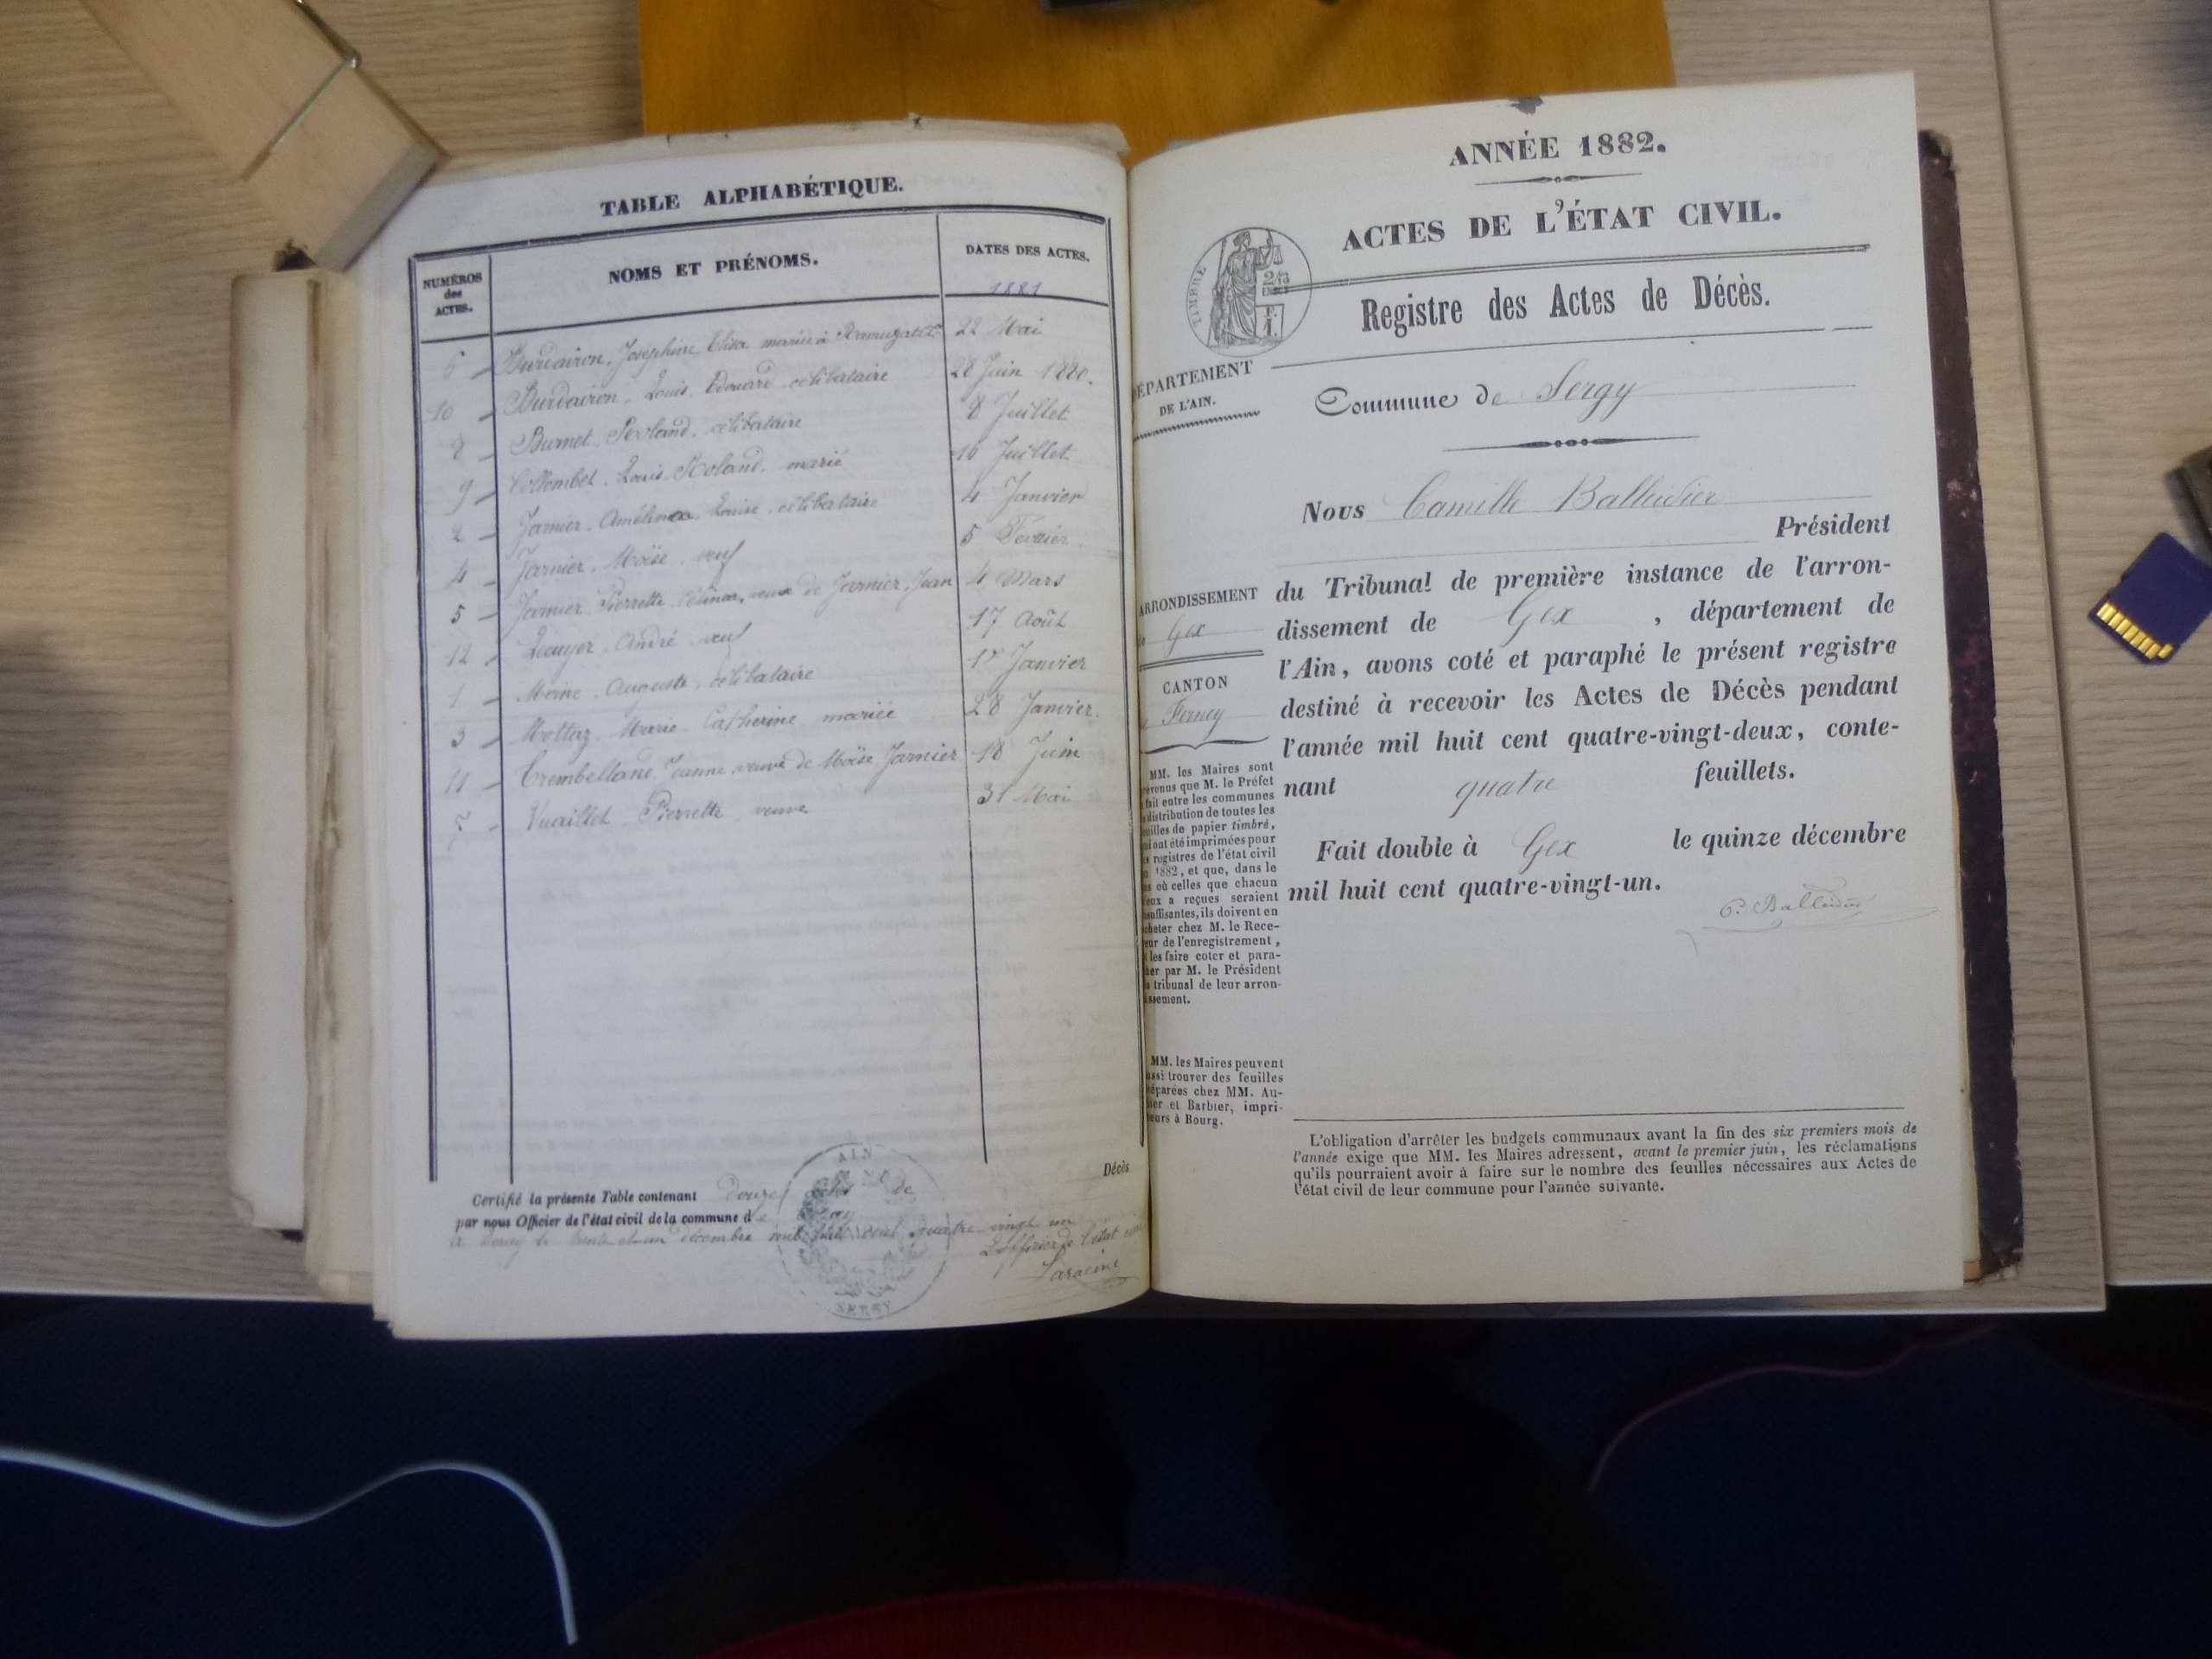 TABLE ALPHABÉTIQUE.
NUMÉROS
des
ACTES.
NOMS ET PRÉNOMS.
DATES DES ACTES.
1881
6 Burdairon, Joséphine Elisa mariée à 22 Mai
10 Burdairon, Louis Edouard célibataire 28 Juin 1880.
8 Burnet célibataire 8 Juillet
9 Collombet Louis Roland marié 16 Juillet
2 Jarnier Louise célibataire 4 Janvier
4 Jarnier Moïse veuf 5 Février
5 Jarnier Pierrette veuve de Jarnier Jean 4 Mars
12 André veuf 17 Août
1 Moine Auguste célibataire 1r Janvier
3 Mottaz Marie Catherine mariée 28 Janvier.
11 Jeanne veuve de Moïse Jarnier 18 Juin
7 Vuaillet Pierrette veuve 31 Mai
Décès
Certifié la présente Table contenant douze actes de
par nous Officier de l'état civil de la commune de
trente et un décembre mil huit cent quatre vingt un
L'officier de l'état civil
AIN
SERGY
ANNÉE 1882.
ACTES DE L'ÉTAT CIVIL.
TIMBRE
Registre des Actes de Décès.
DÉPARTEMENT
DE L'AIN.
Commune de Sergy
Nous Camille Balleidier
Président
ARRONDISSEMENT
Gex
CANTON
Ferney
du Tribunal de première instance de l'arron-
dissement de Gex , département de
l'Ain, avons coté et paraphé le présent registre
destiné à recevoir les Actes de Décès pendant
l'année mil huit cent quatre-vingt-deux, conte-
nant quatre feuillets.
Fait double à Gex le quinze décembre
mil huit cent quatre-vingt-un.
C. Balleidier
MM. les Maires sont
que M. le Préfet
fait entre les communes
distribution de toutes les
de papier timbré,
ont été imprimées pour
registres de l'état civil
1882, et que, dans le
où celles que chacun
a reçues seraient
ils doivent en
chez M. le Rece-
de l'enregistrement,
les faire coter et para-
par M. le Président
tribunal de leur arron-
MM. les Maires peuvent
trouver des feuilles
chez MM. Au-
et Barbier, impri-
à Bourg.
L'obligation d'arrêter les budgets communaux avant la fin des six premiers mois de
l'année exige que MM. les Maires adressent, avant le premier juin, les réclamations
qu'ils pourraient avoir à faire sur le nombre des feuilles nécessaires aux Actes de
l'état civil de leur commune pour l'année suivante.